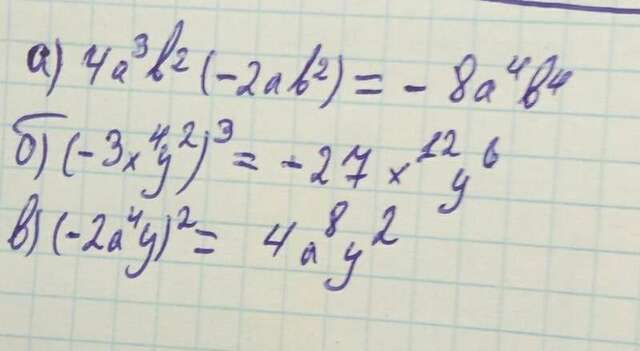 а) 4a³b² (-2ab²) = - 8a⁴b⁴
б) (-3x⁴y²)³ = -27x¹²y⁶
в) (-2a⁴y)² = 4a⁸y²